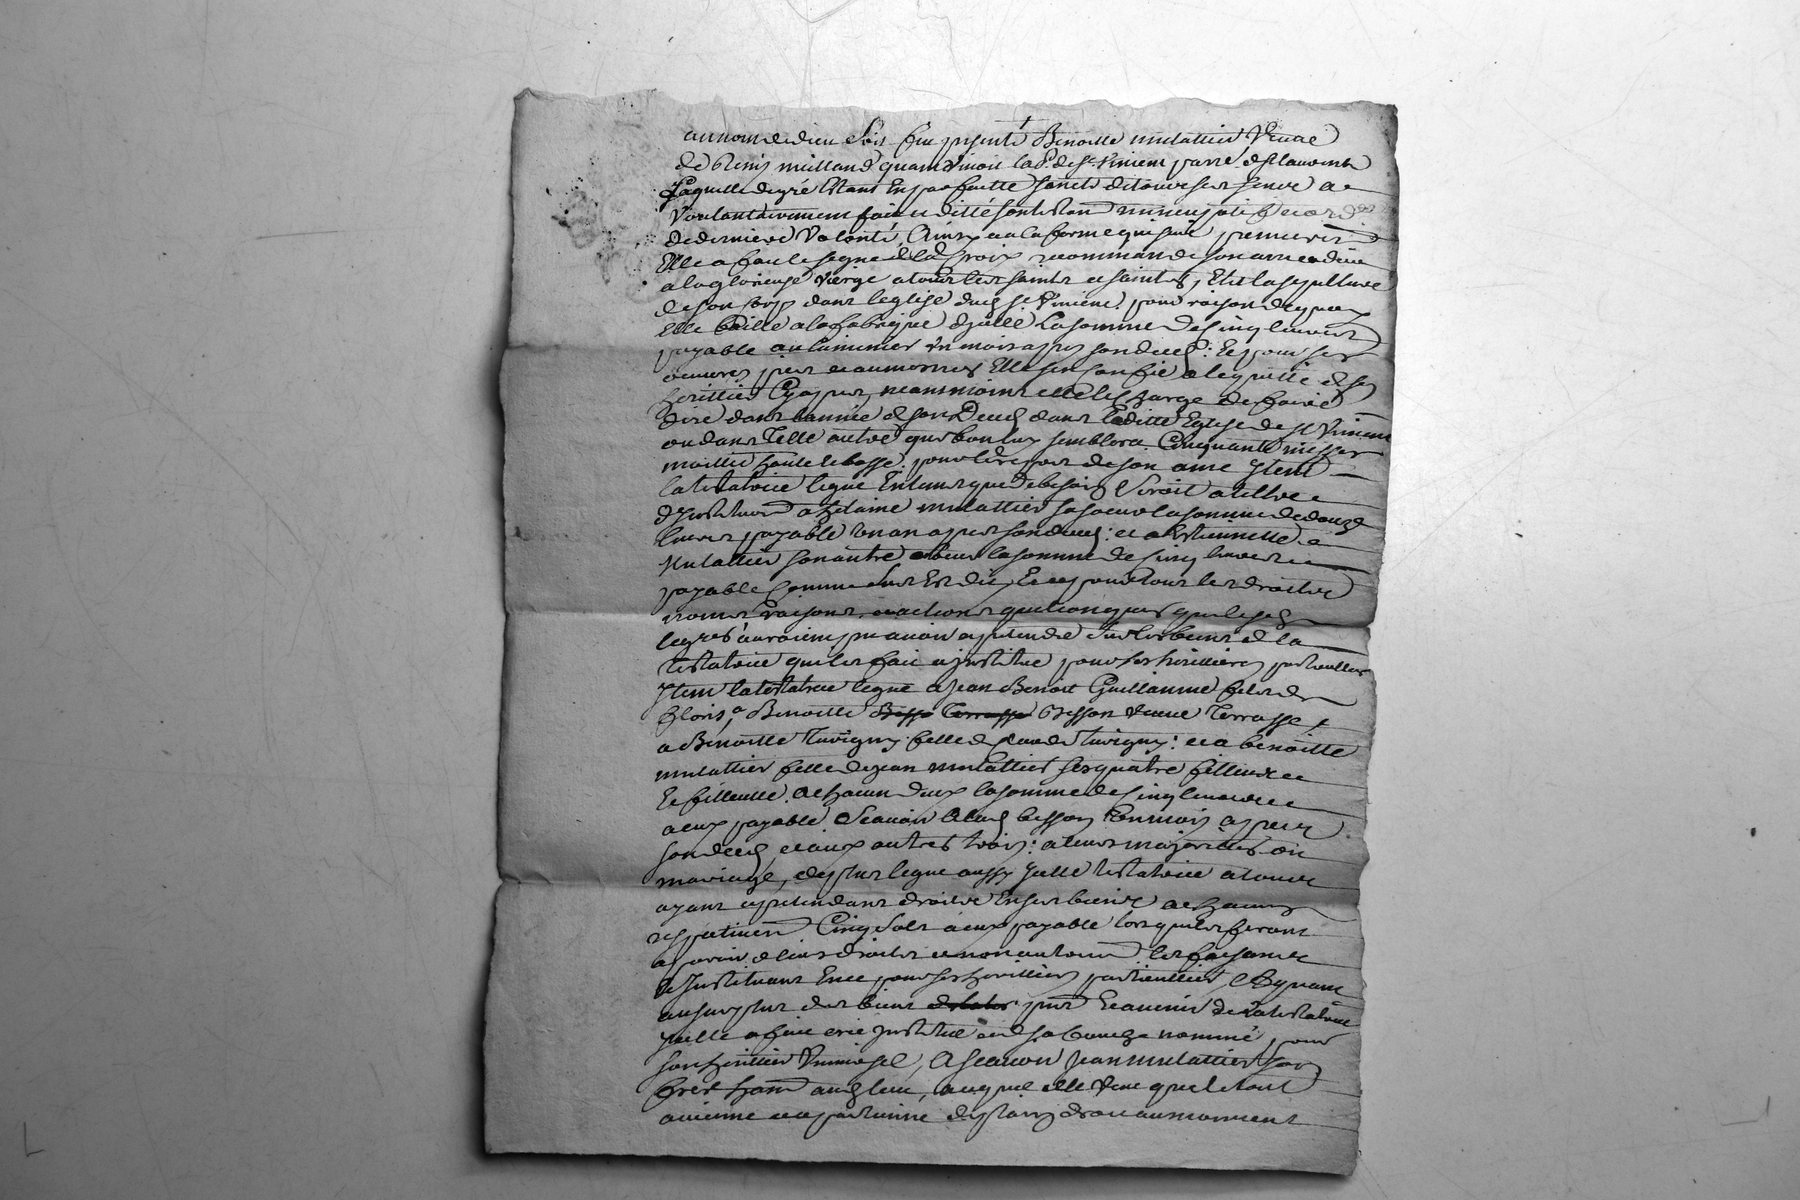 au nom de dieu soit fut presente Benoitte mulattier veuve
de Denis mulland quand vivoit de St. Priest
Laquelle de gré Estant En parfaitte santé
volontairement fait et dicté son testam nuncupatif et ord
de derniere volonté, Ainsy en la forme qui suit premieremt
Elle a fait le signe de la Croix recommandé son ame a dieu
a la glorieuse vierge a tous les saints et saintes, Elit la sepulture
de son corps dans leglise dud pour raison de quoy
Elle baille a la fabrique dycelle La somme de Cinq livres
payable au luminier un mois apres son deced: Et pour ses
oeuvres pies et aumosnes Elle sen confie a lequitté de son
herittier Cy apres, neanmoins elle le charge de faire
dire dans lannée de son Deced dans laditte Eglise de
ou dans telle autre que bon luy semblera Cinquante messes
moittié haute et basse. pour le repos de son ame Item
la testatrice legue En tant que de besoin seroit a tiltre
dinstitution a helaine mulattier sa soeur la somme de douze
livres payable un an apres son deced: et a Estiennette
Mulattier son autre soeur la somme de Cinq livres
payable Comme dessus Est dit, Et ce pour tous les droits
noms raisons et actions quelconques que lesd
legres auroient peu avoir a pretendre sur les biens de la
testatrice quelle fait et institue pour ses herittieres particulieres
Item la testatrice legue a Jean Benoit Guillaume fils de
floris, a Benoitte Besson veuve Terrasse
a Benoitte Tavigny fille de Tavigny: et a benoitte
mulattier fille de Jean mulattier ses quatre filleuls
Et filleulle. a chacun deux la somme de Cinq livres
a eux payable Scavoir a lad besson un mois apres
son deced, et aux autres trois: a leurs majorités ou
mariage, de plus legue aussy Icelle testatrice a tous
ayant et pretendant droits En ses biens a chacun
Cinq sols a eux payable lorsquils feront
aparoir de leurs droits et non autrement les faisant
et Instituant En ce pour ses herittiers particulliers, Et quant
au surplus des biens pnts Et avenir de la testatrice
Icelle a fait cree Institué et de sa bouche nommé, pour
son herittier universel, A scavoir Jean mulattier son
frere auquel elle veut que le tout
avienne et apartienne de plain droit au moment